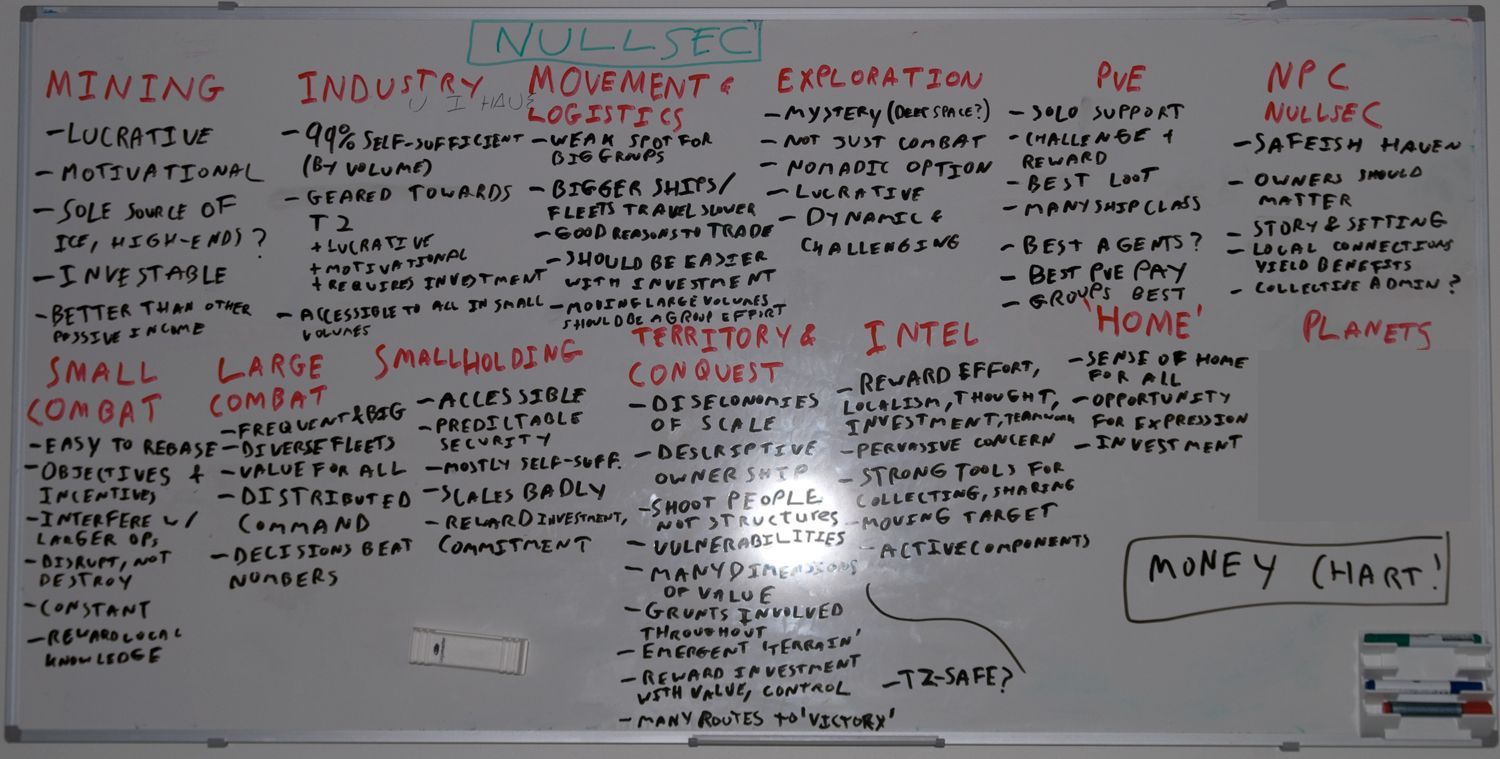 NULLSEC
MINING
-LUCRATIVE
-MOTIVATIONAL
-SOLE SOURCE OF
ICE, HIGH-ENDS?
-INVESTABLE
-BETTER THAN OTHER
PASSIVE INCOME
INDUSTRY
U I HAVE
-99% SELF-SUFFICIENT
(BY VOLUME)
-GEARED TOWARDS
T2
+LUCRATIVE
+MOTIVATIONAL
+REQUIRES INVESTMENT
-ACCESSIBLE TO ALL IN SMALL
VOLUMES
MOVEMENT &
LOGISTICS
-WEAK SPOT FOR
BIG GROUPS
-BIGGER SHIPS/
FLEETS TRAVEL SLOWER
-GOOD REASONS TO TRADE
-SHOULD BE EASIER
WITH INVESTMENT
-MOVING LARGE VOLUMES
SHOULD BE A GROUP EFFORT
EXPLORATION
-MYSTERY (DEEP SPACE?)
-NOT JUST COMBAT
-NOMADIC OPTION
-LUCRATIVE
-DYNAMIC &
CHALLENGING
PVE
-SOLO SUPPORT
-CHALLENGE +
REWARD
-BEST LOOT
-MANY SHIP CLASS
-BEST AGENTS?
-BEST PVE PAY
-GROUPS BEST
NPC
NULLSEC
-SAFEISH HAVEN
-OWNERS SHOULD
MATTER
-STORY & SETTING
-LOCAL CONNECTIONS
YIELD BENEFITS
-COLLECTIVE ADMIN?
SMALL
COMBAT
-EASY TO REBASE
-OBJECTIVES +
INCENTIVES
-INTERFERE W/
LARGER OPS
-DISRUPT, NOT
DESTROY
-CONSTANT
-REWARD LOCAL
KNOWLEDGE
LARGE
COMBAT
-FREQUENT & BIG
-DIVERSE FLEETS
-VALUE FOR ALL
-DISTRIBUTED
COMMAND
-DECISIONS BEAT
NUMBERS
SMALLHOLDING
-ACCESSIBLE
-PREDICTABLE
SECURITY
-MOSTLY SELF-SUFF.
-SCALES BADLY
-REWARD INVESTMENT,
COMMITMENT
TERRITORY &
CONQUEST
-DISECONOMIES
OF SCALE
-DESCRIPTIVE
OWNERSHIP
-SHOOT PEOPLE
NOT STRUCTURES
-VULNERABILITIES
-MANY DIMENSIONS
OF VALUE
-GRUNTS INVOLVED
THROUGHOUT
-EMERGENT 'TERRAIN'
-REWARD INVESTMENT
WITH VALUE, CONTROL
-MANY ROUTES TO 'VICTORY'
INTEL
-REWARD EFFORT,
LOCALISM, THOUGHT,
INVESTMENT, TEAMWORK
-PERVASIVE CONCERN
-STRONG TOOLS FOR
COLLECTING, SHARING
-MOVING TARGET
-ACTIVE COMPONENTS
-TZ-SAFE?
'HOME'
-SENSE OF HOME
FOR ALL
-OPPORTUNITY
FOR EXPRESSION
-INVESTMENT
PLANETS
MONEY CHART!